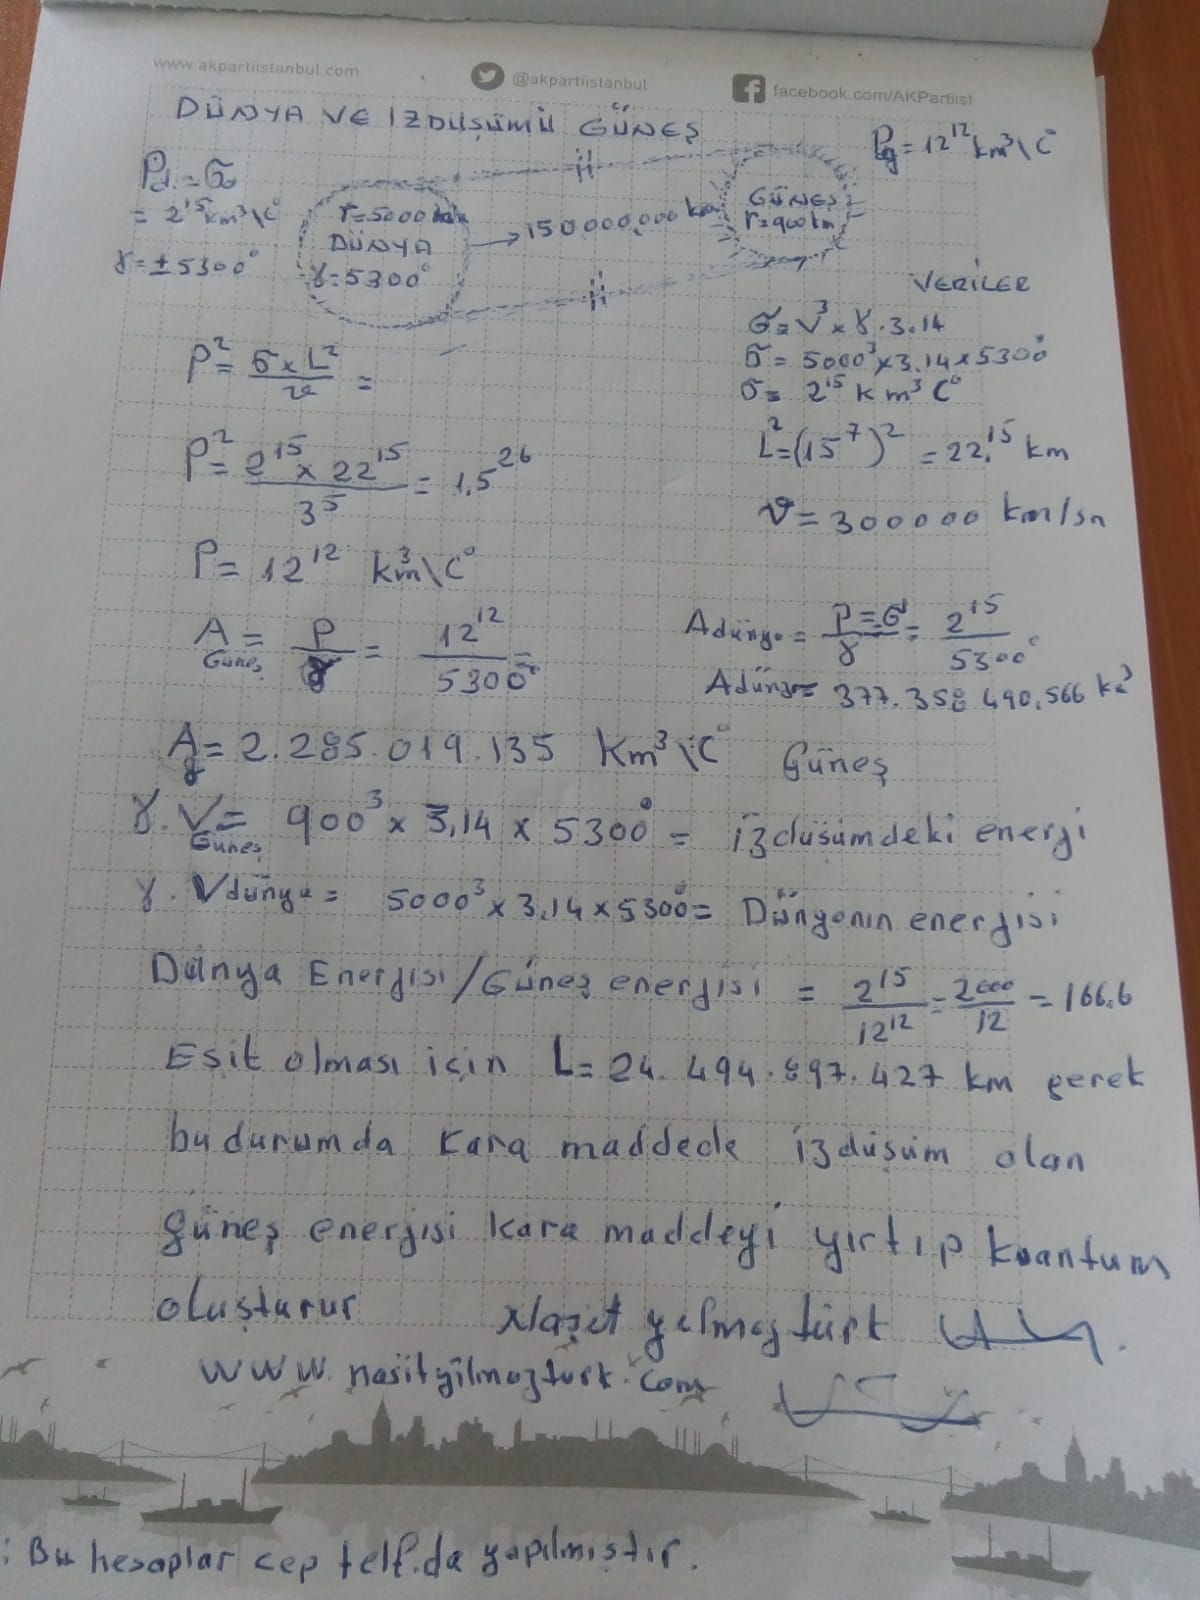 www.akpartiistanbul.com @akpartiistanbul facebook.com/AKPartiist
DÜNYA VE İZDÜŞÜMÜ GÜNEŞ
Pg = 12¹² km³\C°
Pd = σ
= 2¹⁵ km³\C°
γ = ±5300°
r=5000 km
DÜNYA
γ=5300°
150.000.000 km
GÜNEŞ
r=900 km
VERİLER
σ = V³ x γ . 3.14
σ = 5000³ x 3.14 x 5300°
σ = 2¹⁵ km³ C°
L² = (15⁷)² = 22,¹⁵ km
ϑ = 300000 km/sn
P² = σ x L² / ϑ =
P² = 2¹⁵ x 22¹⁵ / 3⁵ = 1,5²⁶
P = 12¹² km³\C°
A Güneş = P / γ = 12¹² / 5300° =
Adünya = P=σ / γ = 2¹⁵ / 5300°
Adünya = 377.358 490,566 k³
Ag = 2.285.019.135 Km³\C° Güneş
γ. V Güneş = 900³ x 3,14 x 5300° = izdüşümdeki energi
γ. Vdünya = 5000³ x 3,14 x 5300° = Dünyanın energisi
Dünya Energisi/Güneş energisi = 2¹⁵ / 12¹² = 2000 / 12 = 166.6
Eşit olması için L = 24.494.897.427 km gerek
bu durumda kara maddede izdüşüm olan
güneş energisi kara maddeyi yırtıp kuantum
oluşturur Naşit yılmaztürk
www.nasityilmazturk.com
: Bu hesaplar cep telf.da yapılmıştır.